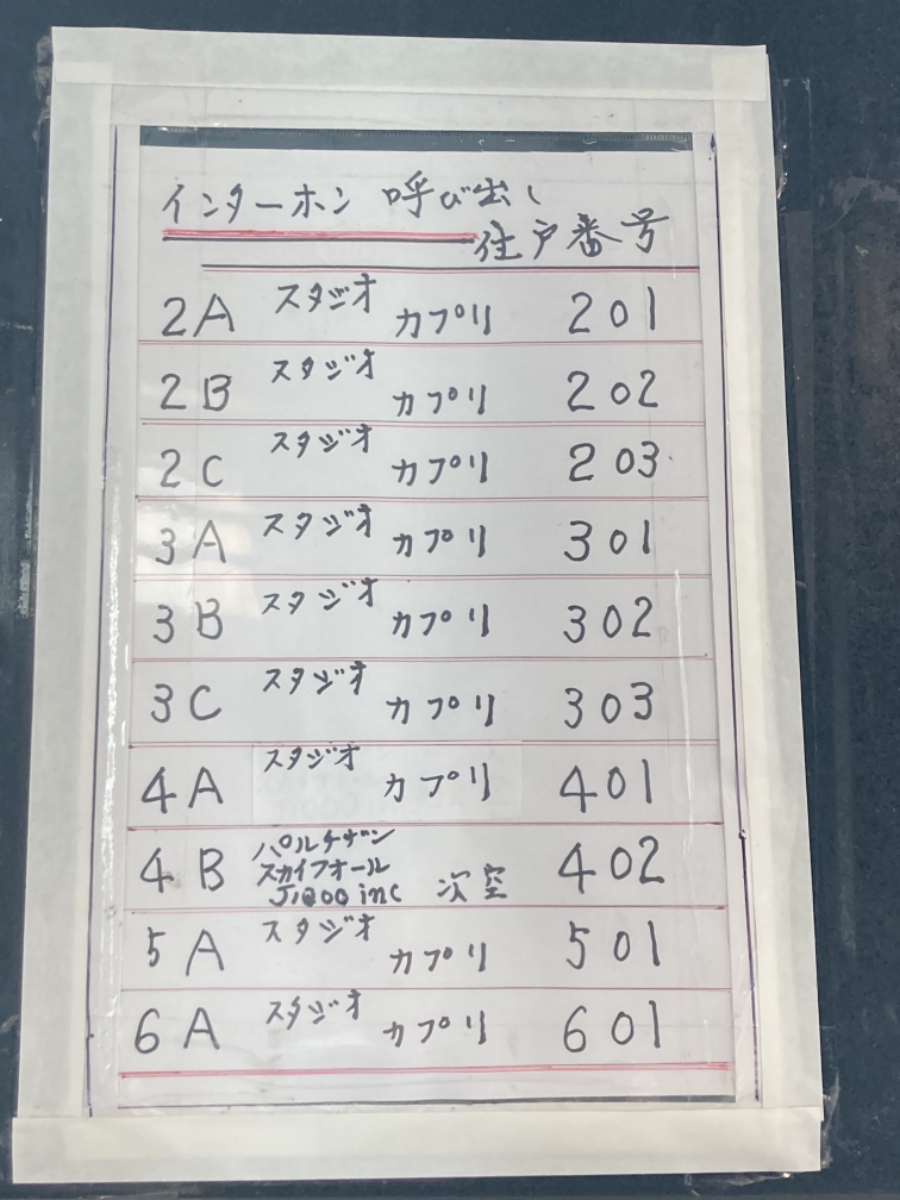 インターホン 呼び出し
住戸番号
2A スタジオ カプリ 201
2B スタジオ カプリ 202
2C スタジオ カプリ 203
3A スタジオ カプリ 301
3B スタジオ カプリ 302
3C スタジオ カプリ 303
4A スタジオ カプリ 401
4B パルチザン
スカイフォール
J1Qoo inc 次空 402
5A スタジオ カプリ 501
6A スタジオ カプリ 601